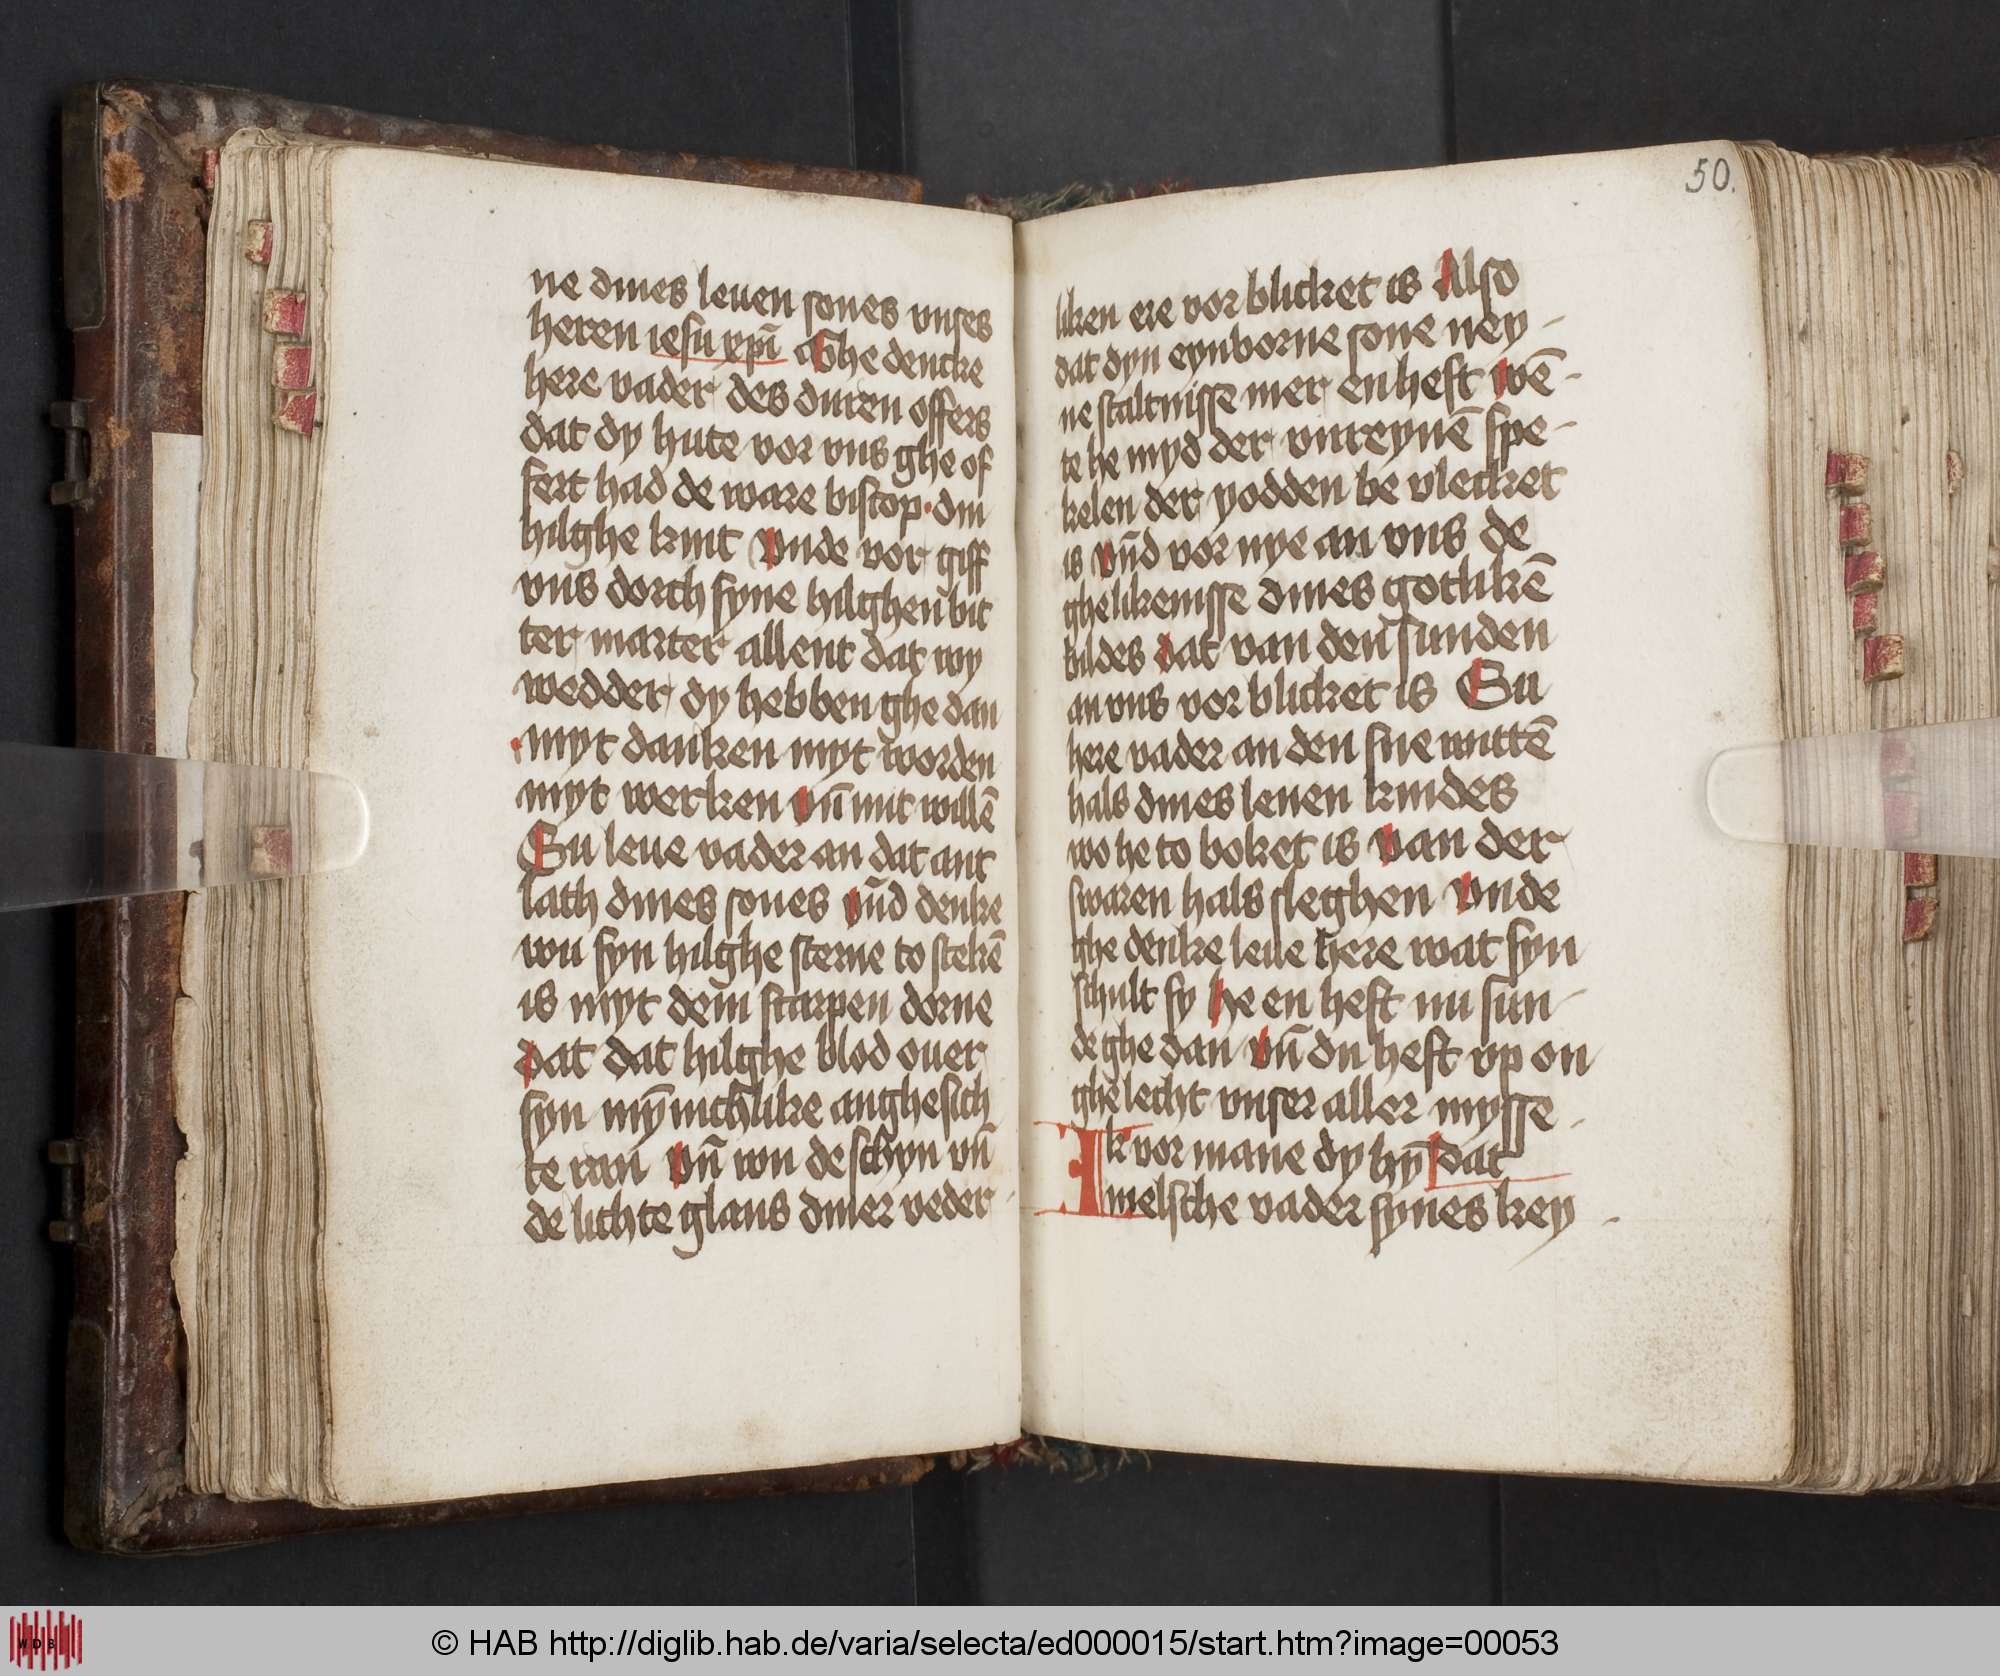 ne dines leuen sones vnses
heren iesu xpī Ghe dencke
here vader des duren offers
dat dy hute vor vns ghe of
fert had de ware biscop · din
hilghe kint Vnde vor giff
vns dorch syne hilghen bit
ter marter allent dat wy
wedder dy hebben ghe dan
myt danken myt worden
myt werken vn̄ mit willē
Su leue vader an dat ant
lath dines sones vn̄d denke
wu syn hilghe sterne to stekē
is myt dem scarpen dorne
dat dat hilghe blod ouer
syn mȳnichlike anghesich
te ran vn̄ wu de schyn vn̄
de lichte glans diner veder
50.
liken ere vor blicket is Also
dat dyn eynborne sone ney-
ne staltnisse mer en heft wē-
te he myd der vnreynē spe-
kelen der yodden be vlecket
is vn̄d vor nye an vns de
ghelikenisse dines gotlikē
bildes dat van den sunden
an vns vor blicket is Su
here vader an den sne wittē
hals dines leuen kindes
wo he to boket is van der
swaren hals sleghen Vnde
ghe denke leue here wat syn
schult sy he en heft nu sun-
de ghe dan vn̄ du heft vp on
ghe lecht vnser aller mysse
Ik vor mane dy hȳ dat
melsche vader synes key
WDB
© HAB http://diglib.hab.de/varia/selecta/ed000015/start.htm?image=00053